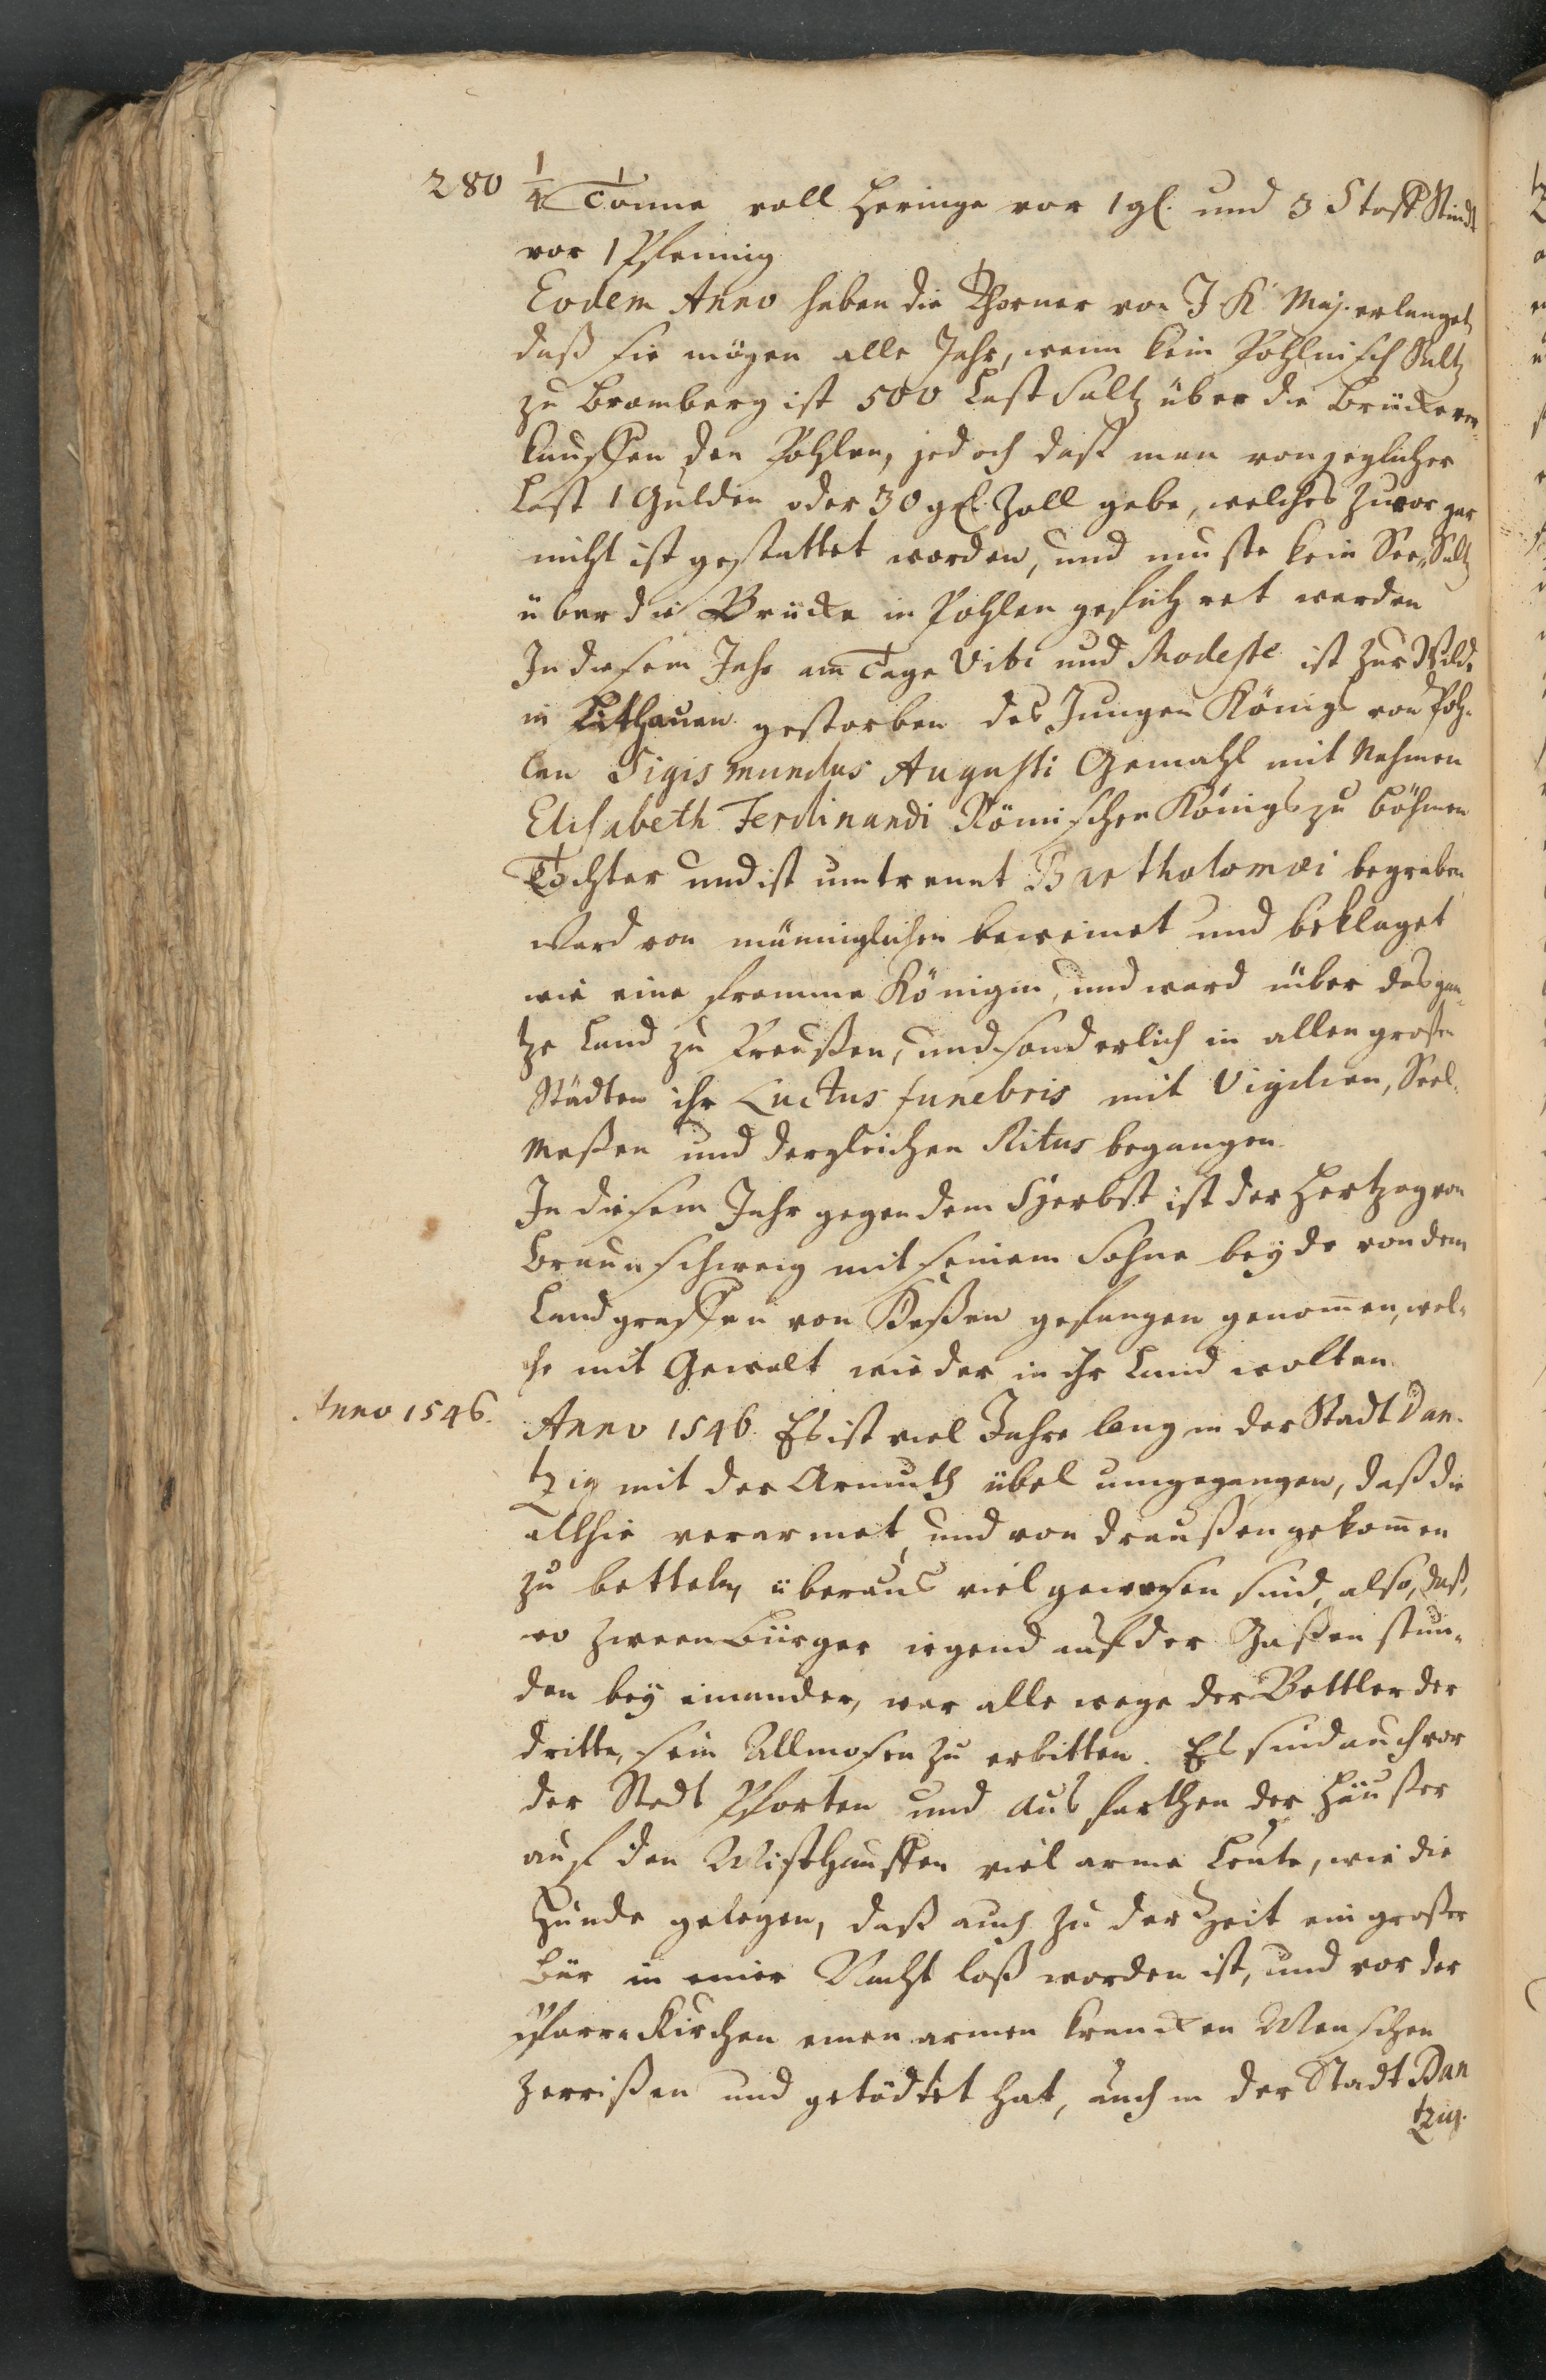 280
1/4 Tonne voll Heringe vor 1 gl. und 3 Stoff Stindt
vor 1 Pfennig
Eodem Anno haben die Thorner von J. K. Maj. erlanget
daß sie mögen alle Jahr, wenn kein Pohlnisch Saltz
zu Bromberg ist 500 Last Saltz über die Brücke ver-
kauffen den Pohlen, jedoch daß man von jeglicher
Last 1 Gulden oder 30 gl. Zoll gebe, welches zuvor gar
nicht ist gestattet worden, und muste kein See-Saltz
über die Brücke in Pohlen geführet werden
In diesem Jahr am Tage Viti und Modeste ist zur Wilde
in Litthauen gestorben des Jungen Königs von Poh-
len Sigismundus Augusti Gemahl mit Nahmen
Elisabeth Ferdinandi Römischen Königs zu Böhmen
Tochter und ist umtrennt Bartholomæi begraben
Ward von männiglichen beweinet und beklaget
wie eine fromme Königin, und ward über das gan-
tze Land zu Preußen, und sonderlich in allen großen
Städten ihr Luctus funebris mit Vigilien, Seel-
Meßen und dergleichen Ritus begangen.
In diesem Jahr gegen dem Herbst ist der Hertzog von
Braunschweig mit seinem Sohne beyde von dem
Landgraffen von Heßen gefangen genommen, wel-
che mit Gewalt wieder in ihr Land wolten.
Anno 1546.
Anno 1546. Es ist viel Jahre lang in der Stadt Dan-
tzig mit der Armuth übel umgegangen, daß die
allhie verarmet, und von draußen gekommen
zu betteln, überaus viel gewesen sind, also, daß,
wo zween Bürger irgend auf der Gaßen stun-
den bey einander, war alle wege der Bettler der
dritte, sein Allmosen zu erbitten. Es sind auch vor
der Stadt Pforten und Ausfarthen der Häußer
auf den Misthauffen viel arme Leute, wie die
Hunde gelegen, daß auch zu der Zeit ein großer
Bär in einer Nacht loß worden ist, und vor der
Pfarr-Kirchen einen armen krancken Menschen
zerrißen und getödtet hat, auch in der Stadt Dan
tzig.